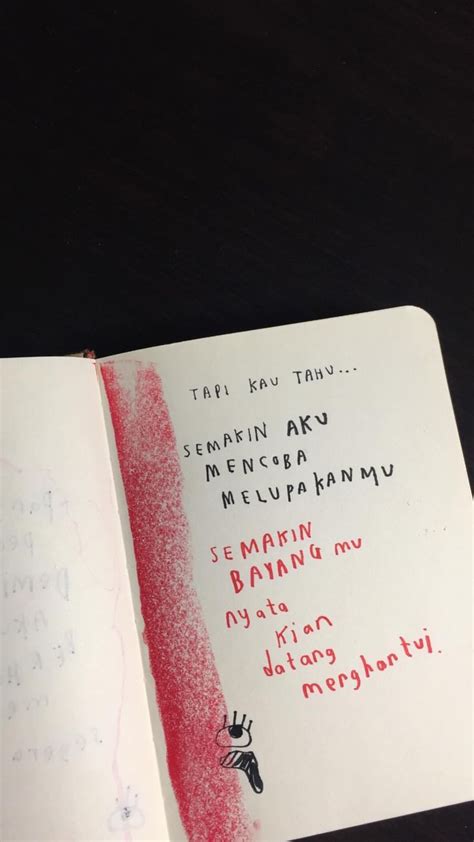 TAPI KAU TAHU...
SEMAKIN AKU
MENCOBA
MELUPAKANMU
SEMAKIN
BAYANG mu
nyata
kian
datang
menghantui.